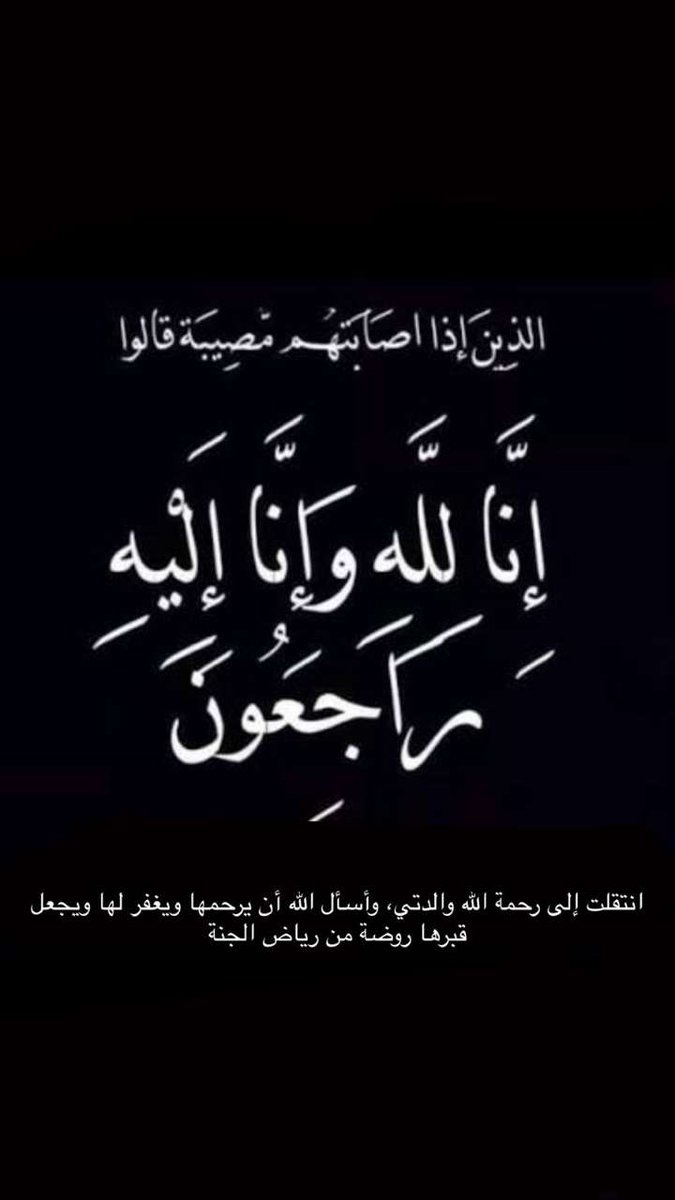 الذِينَ إذا اصَابَتهُم مّصِيبَة قالوا
إِنَّا للَّه وَإنَّا إلَيْهِ
رَاجِعُونَ
انتقلت إلى رحمة الله والدتي، وأسأل الله أن يرحمها ويغفر لها ويجعل
قبرها روضة من رياض الجنة